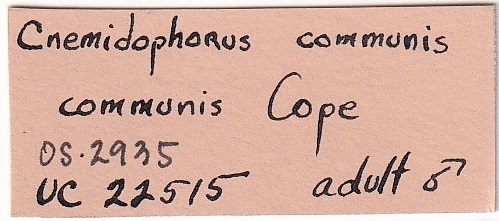 Cnemidophorus communis
communis Cope
OS.2935
UC 22515 adult ♂